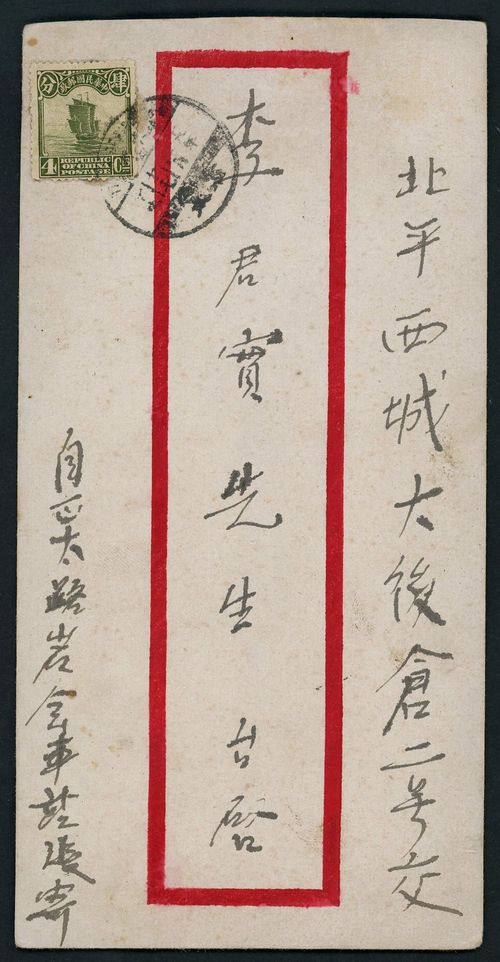 北平西城大後倉二号交
李君實先生台啓
自正太路岩会車站張寄
中華民國郵政
肆分
4 Cts
REPUBLIC
OF CHINA
POSTAGE